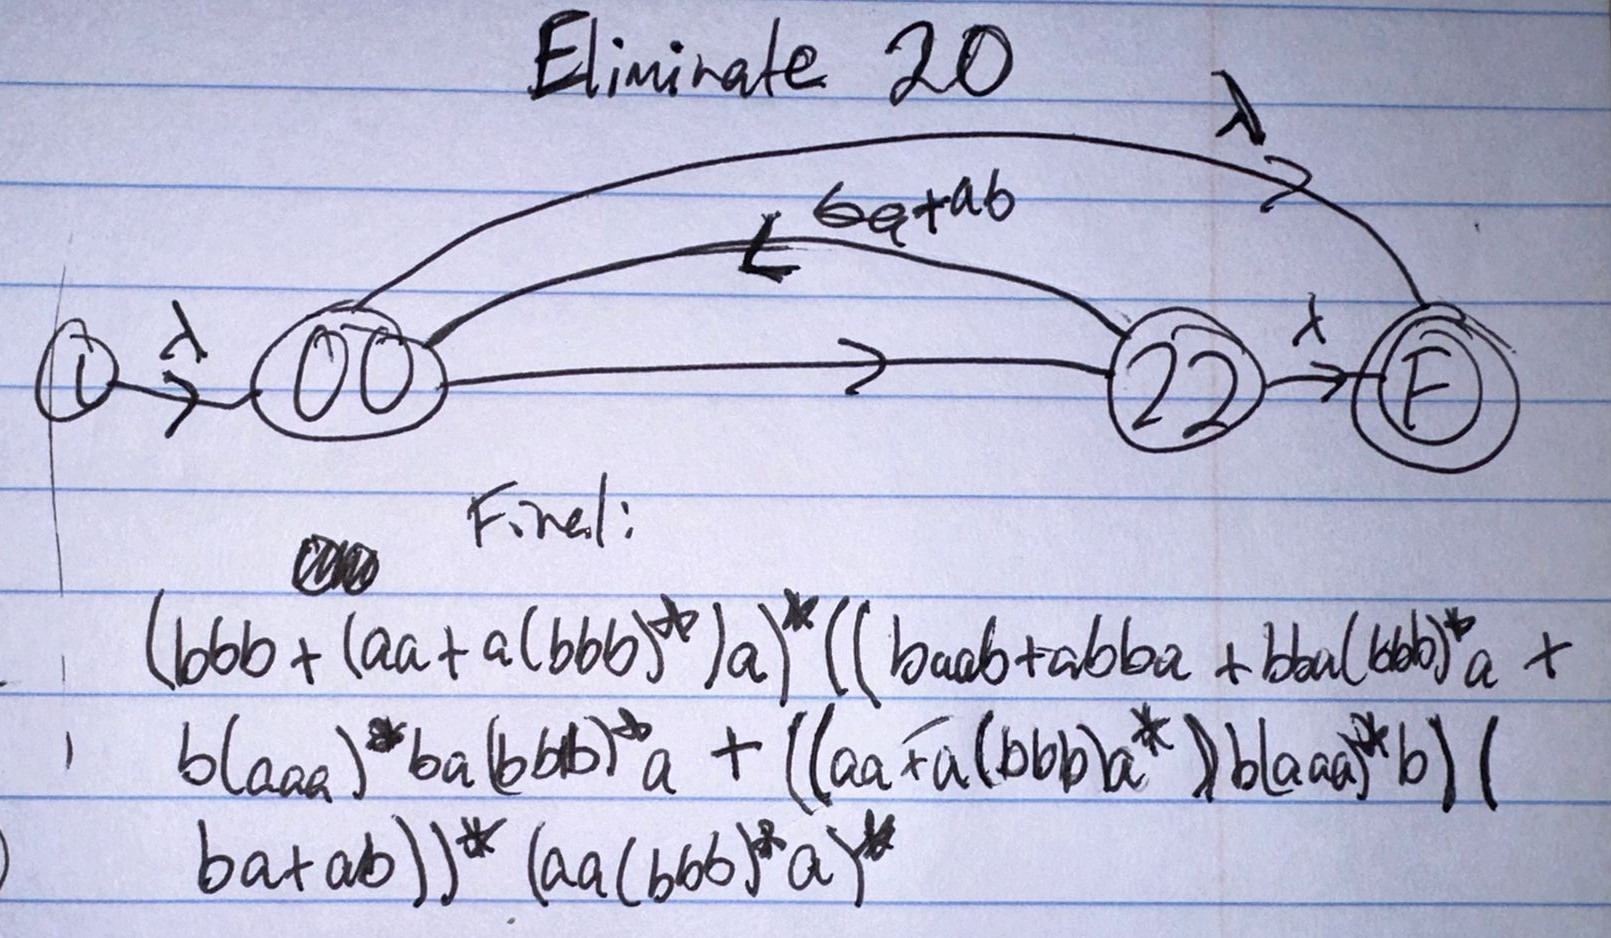 Eliminate 20
λ
ba+ab
λ
λ
00
22
F
Final:
(bbb + (aa + a(bbb)*)a)*((baab+abba + bba(bbb)*a +
b(aaa)*ba(bbb)*a + ((aa+a(bbb)a*))b(aaa)*b)(
ba+ab))* (aa(bbb)*a)*